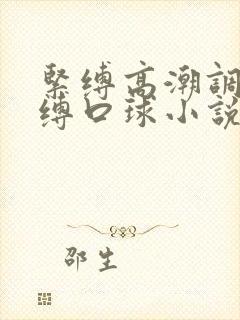 緊縛高潮調
縛口球小說
邵生